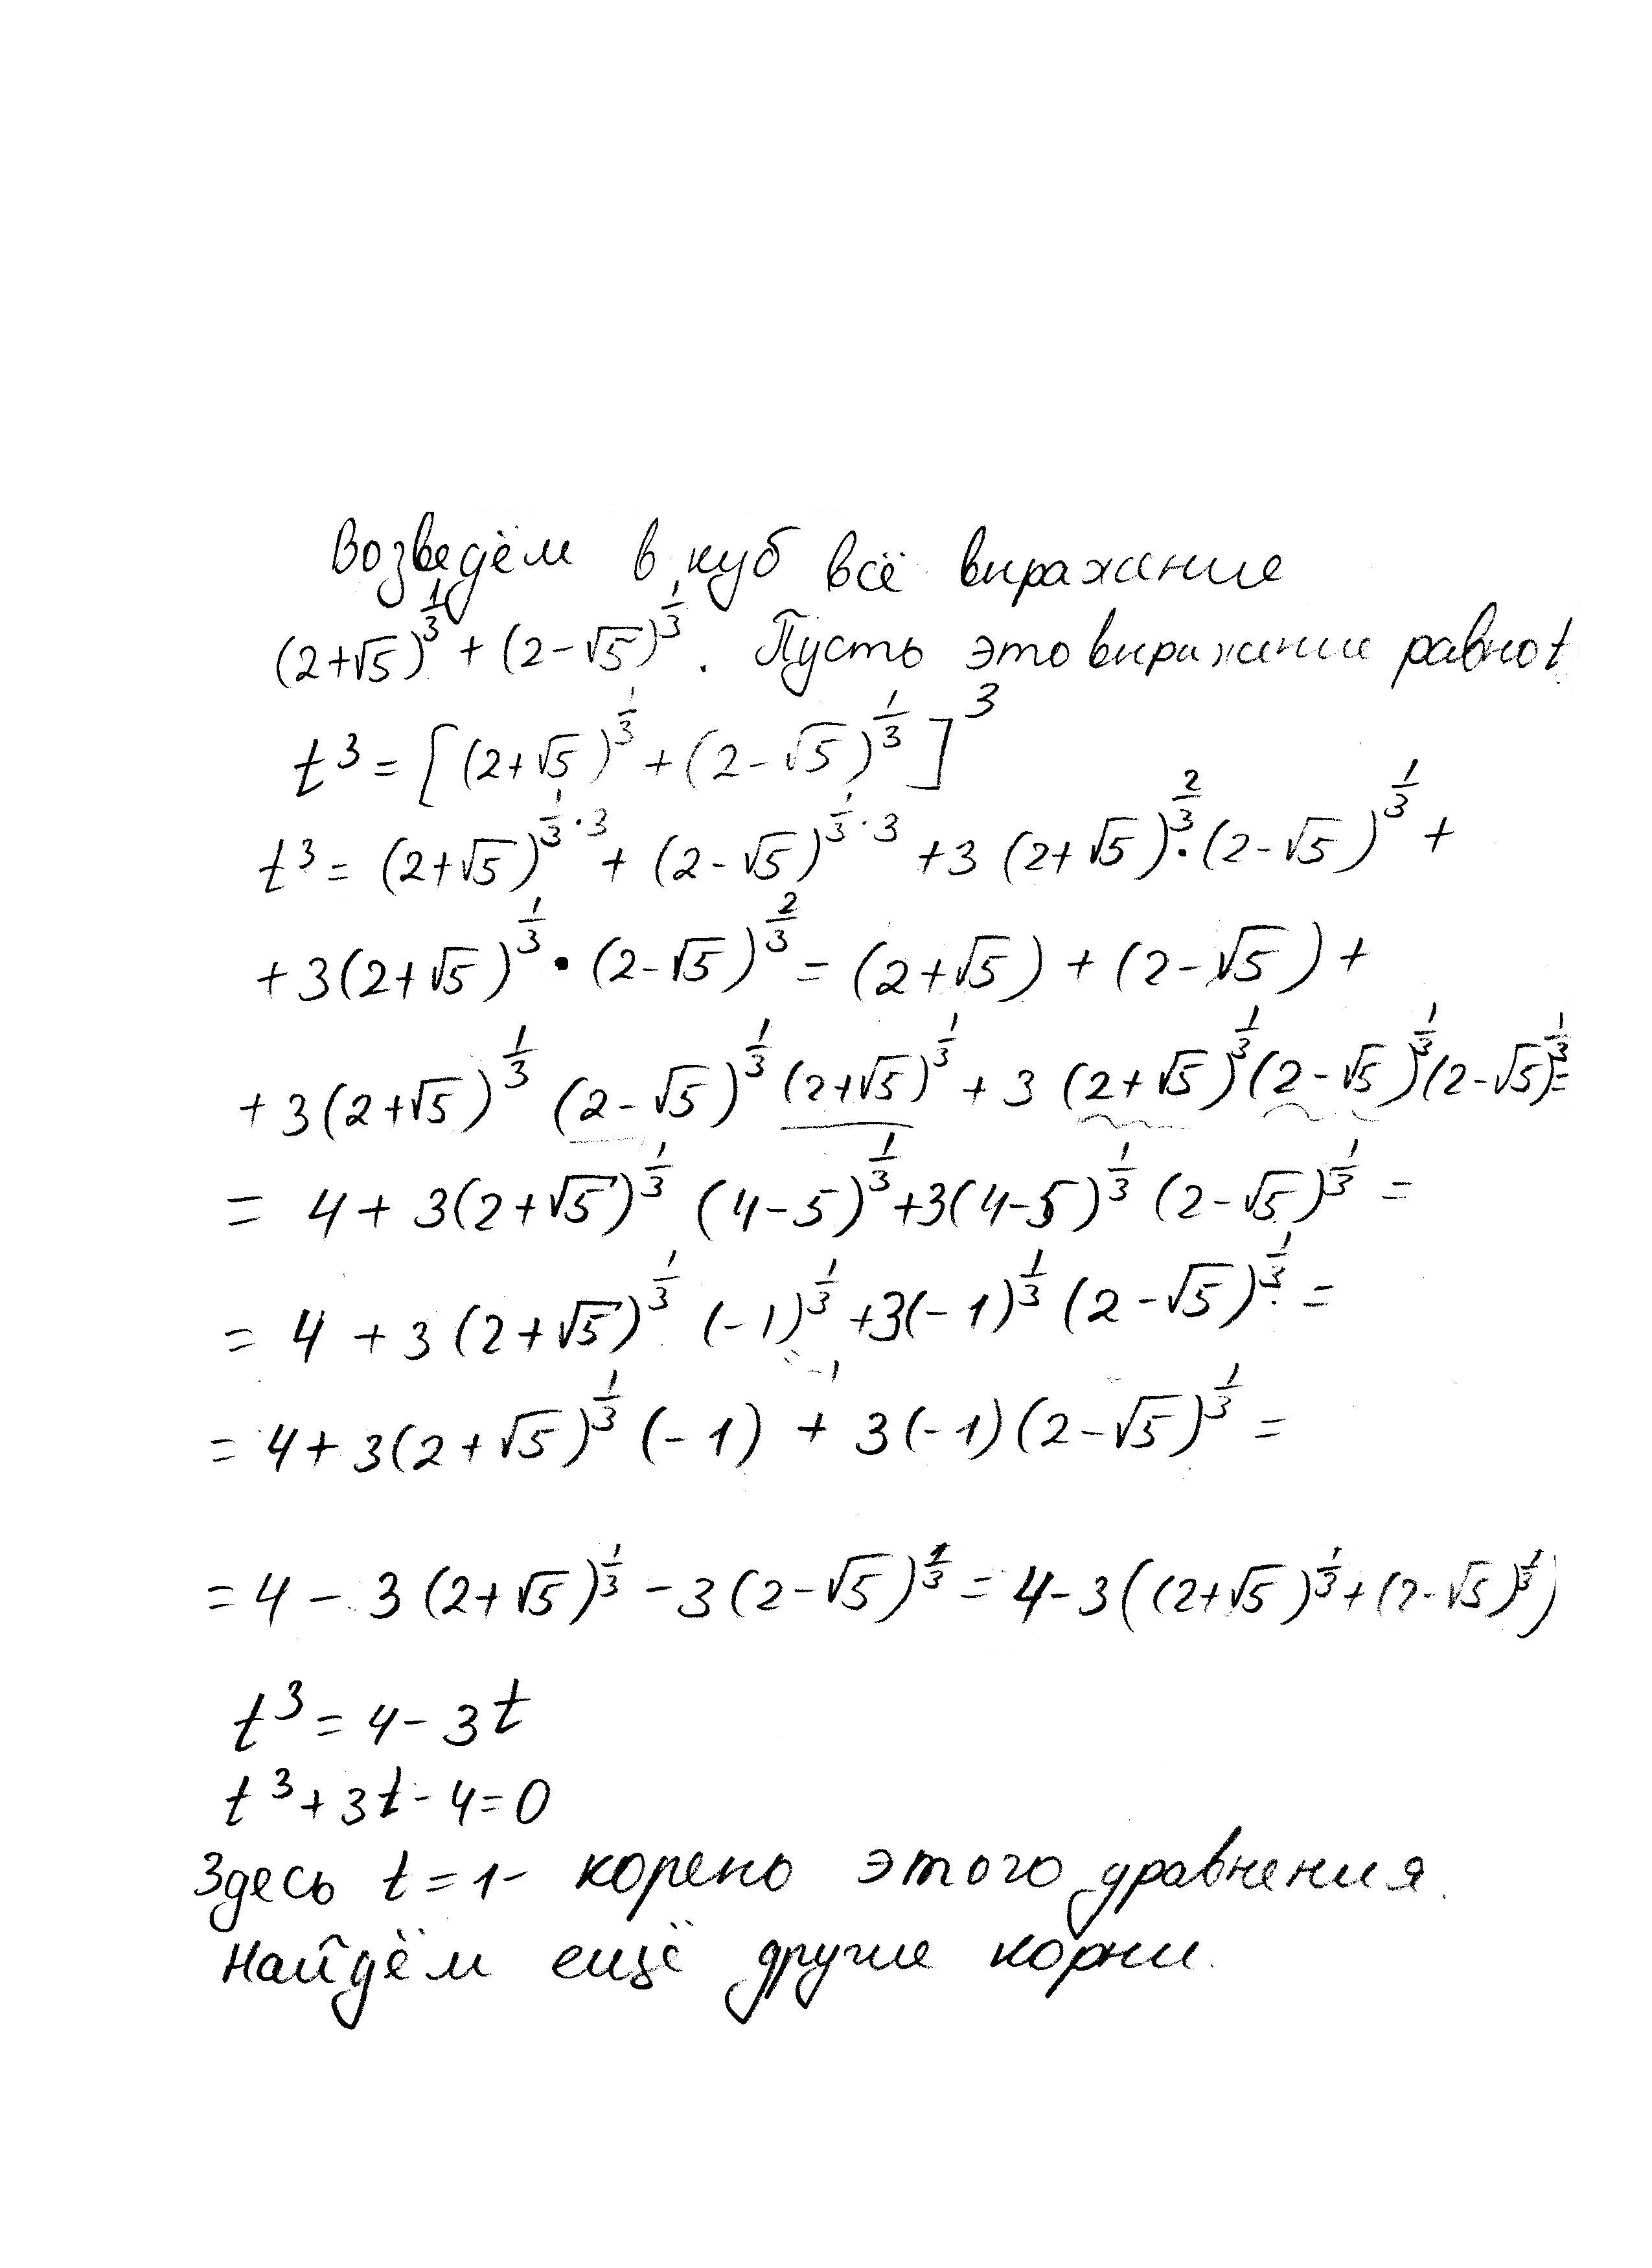 Возведём в куб всё выражение
(2+√5)^{1/3} + (2-√5)^{1/3}. Пусть это выражение равно t
t^3 = [(2+√5)^{1/3} + (2-√5)^{1/3}]^3
t^3 = (2+√5)^{1/3·3} + (2-√5)^{1/3·3} + 3(2+√5)^{2/3}·(2-√5)^{1/3} +
+ 3(2+√5)^{1/3}·(2-√5)^{2/3} = (2+√5) + (2-√5) +
+ 3(2+√5)^{1/3} (2-√5)^{1/3} (2+√5)^{1/3} + 3(2+√5)^{1/3} (2-√5)^{1/3} (2-√5)^{1/3} =
= 4 + 3(2+√5)^{1/3} (4-5)^{1/3} + 3(4-5)^{1/3} (2-√5)^{1/3} =
= 4 + 3(2+√5)^{1/3} (-1)^{1/3} + 3(-1)^{1/3} (2-√5)^{1/3} =
-1
= 4 + 3(2+√5)^{1/3} (-1) + 3(-1)(2-√5)^{1/3} =
= 4 - 3(2+√5)^{1/3} - 3(2-√5)^{1/3} = 4 - 3((2+√5)^{1/3} + (2-√5)^{1/3})
t^3 = 4 - 3t
t^3 + 3t - 4 = 0
Здесь t = 1 - корень этого уравнения.
Найдём ещё другие корни.